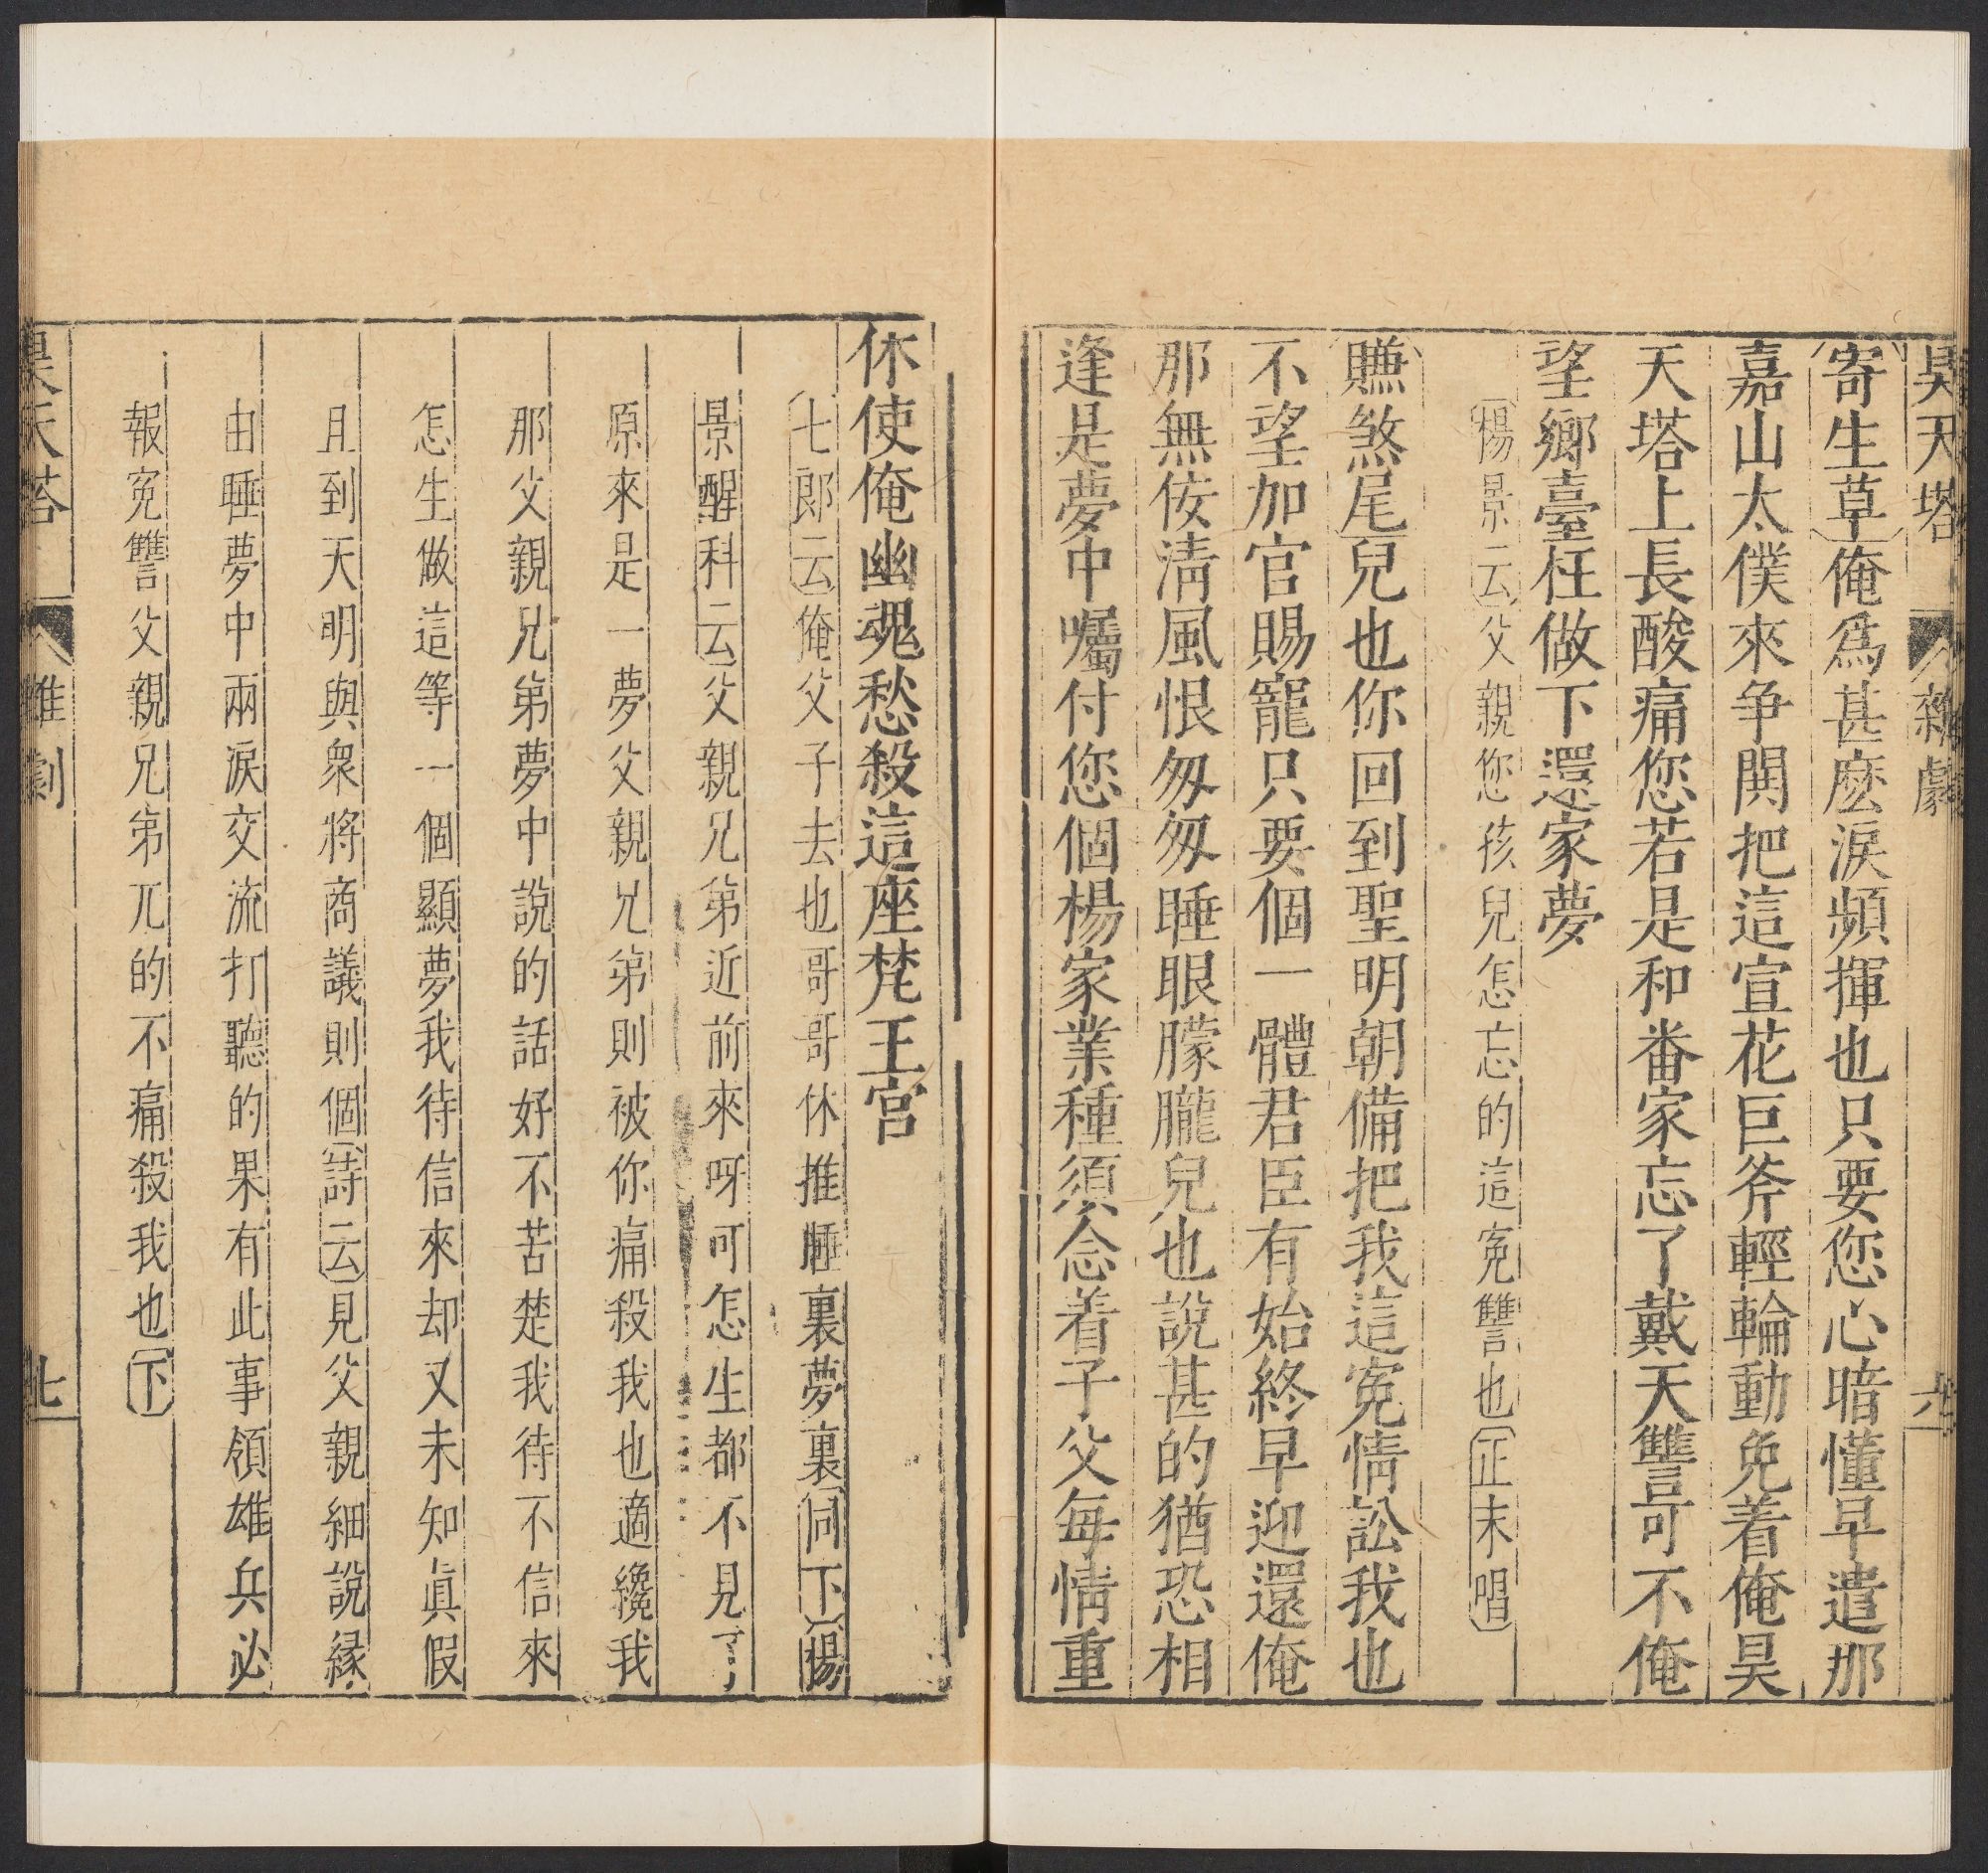 昊天塔 雜劇 六
寄生草俺爲甚麽淚頻揮也只要您心暗懂早遣那
嘉山太僕來争閧把這宣花巨斧輕輪動免着俺昊
天塔上長酸痛您若是和番家忘了戴天讐可不俺
望鄉臺枉做下還家夢
楊景云父親您孩兒怎忘的這寃讐也正末唱
賺煞尾兒也你回到聖明朝備把我這寃情訟我也
不望加官賜寵只要個一體君臣有始終早迎還俺
那無侫清風恨匆匆睡眼朦朧兒也說甚的猶恐相
逢是夢中囑付您個楊家業種須念着子父每情重
休使俺幽魂愁殺這座梵王宮
七郎云俺父子去也哥哥休推睡裏夢裏同下楊
景醒科云父親兄弟近前來呀可怎生都不見了
原來是一夢父親兄弟則被你痛殺我也適纔我
那父親兄弟夢中說的話好不苦楚我待不信來
怎生做這等一個顯夢我待信來却又未知眞假
且到天明與衆將商議則個詩云見父親細說縁
由睡夢中兩淚交流打聽的果有此事領雄兵必
報寃讐父親兄弟兀的不痛殺我也下
昊天塔 雜劇 七